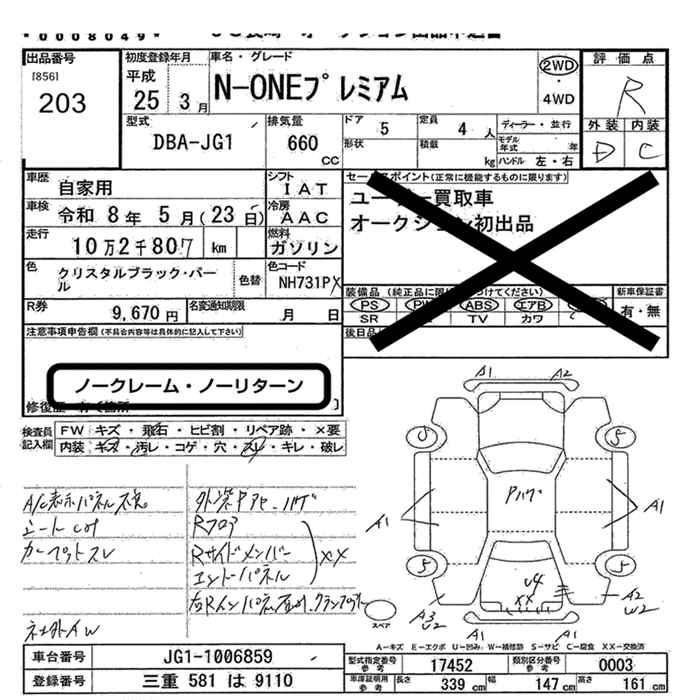 *0008049*
出品番号
[856]
203
初度登録年月
平成
25年 3月
車名・グレード
N-ONEプレミアム
2WD
・
4WD
評価点
R
外装 内装
D C
型式
DBA-JG1
排気量
660
CC
ドア
5
定員
4 人
形状
積載
kg
ディーラー・並行
モデル年式 年
ハンドル 左・右
車歴
自家用
シフト
IAT
車検
令和 8年 5月(23日)
冷房
AAC
走行
10万2千807 km
燃料
ガソリン
色
クリスタルブラック・パール
色替
色コード
NH731PX
R券
9,670円
名変通知期限
月 日
セールスポイント(正常に機能するものに限ります)
ユーザー買取車
オークション初出品
装備品(純正品に限
つけてください)
PS PW ABS エアB
SR TV カワ
新車保証書
有・無
後日品
注意事項申告欄(不具合内容等は具体的に記入して下さい)
ノークレーム・ノーリターン
修復歴
検査員記入欄
FW キズ・飛石・ヒビ割・リペア跡・×要
内装・キズ・汚レ・コゲ・穴・スリ・キレ・破レ
A/C表示パネル不良
シートCot
カーペットスレ
社外AW
外装キズ
Rフロア
Rサイドメンバー
エンドパネル
XX
右Rインパネ
A1 A2
5 5
A1 Pハゲ A1
5 5
U4
XX
A3
U2
A2
W2
A1 A1
スペア
A=キズ E=エクボ U=凹み W=補修跡 S=サビ C=腐食 XX=交換済
車台番号 JG1-1006859
型式指定番号 参考 17452
類別区分番号 参考 0003
登録番号 三重 581 は 9110
車庫証明用 参考 長さ 339 cm 幅 147 cm 高さ 161 cm